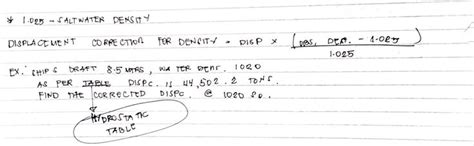 * 1.025 - SALTWATER DENSITY
DISPLACEMENT CORRECTION FOR DENSITY = DISP x (OBS. DEN. - 1.025)
1.025
EX: SHIP'S DRAFT 8.5 MTRS, WATER DENS. 1020
AS PER TABLE DISPC. IS 44,502.2 TONS.
FIND THE CORRECTED DISPC. @ 1020
HYDROSTATIC
TABLE